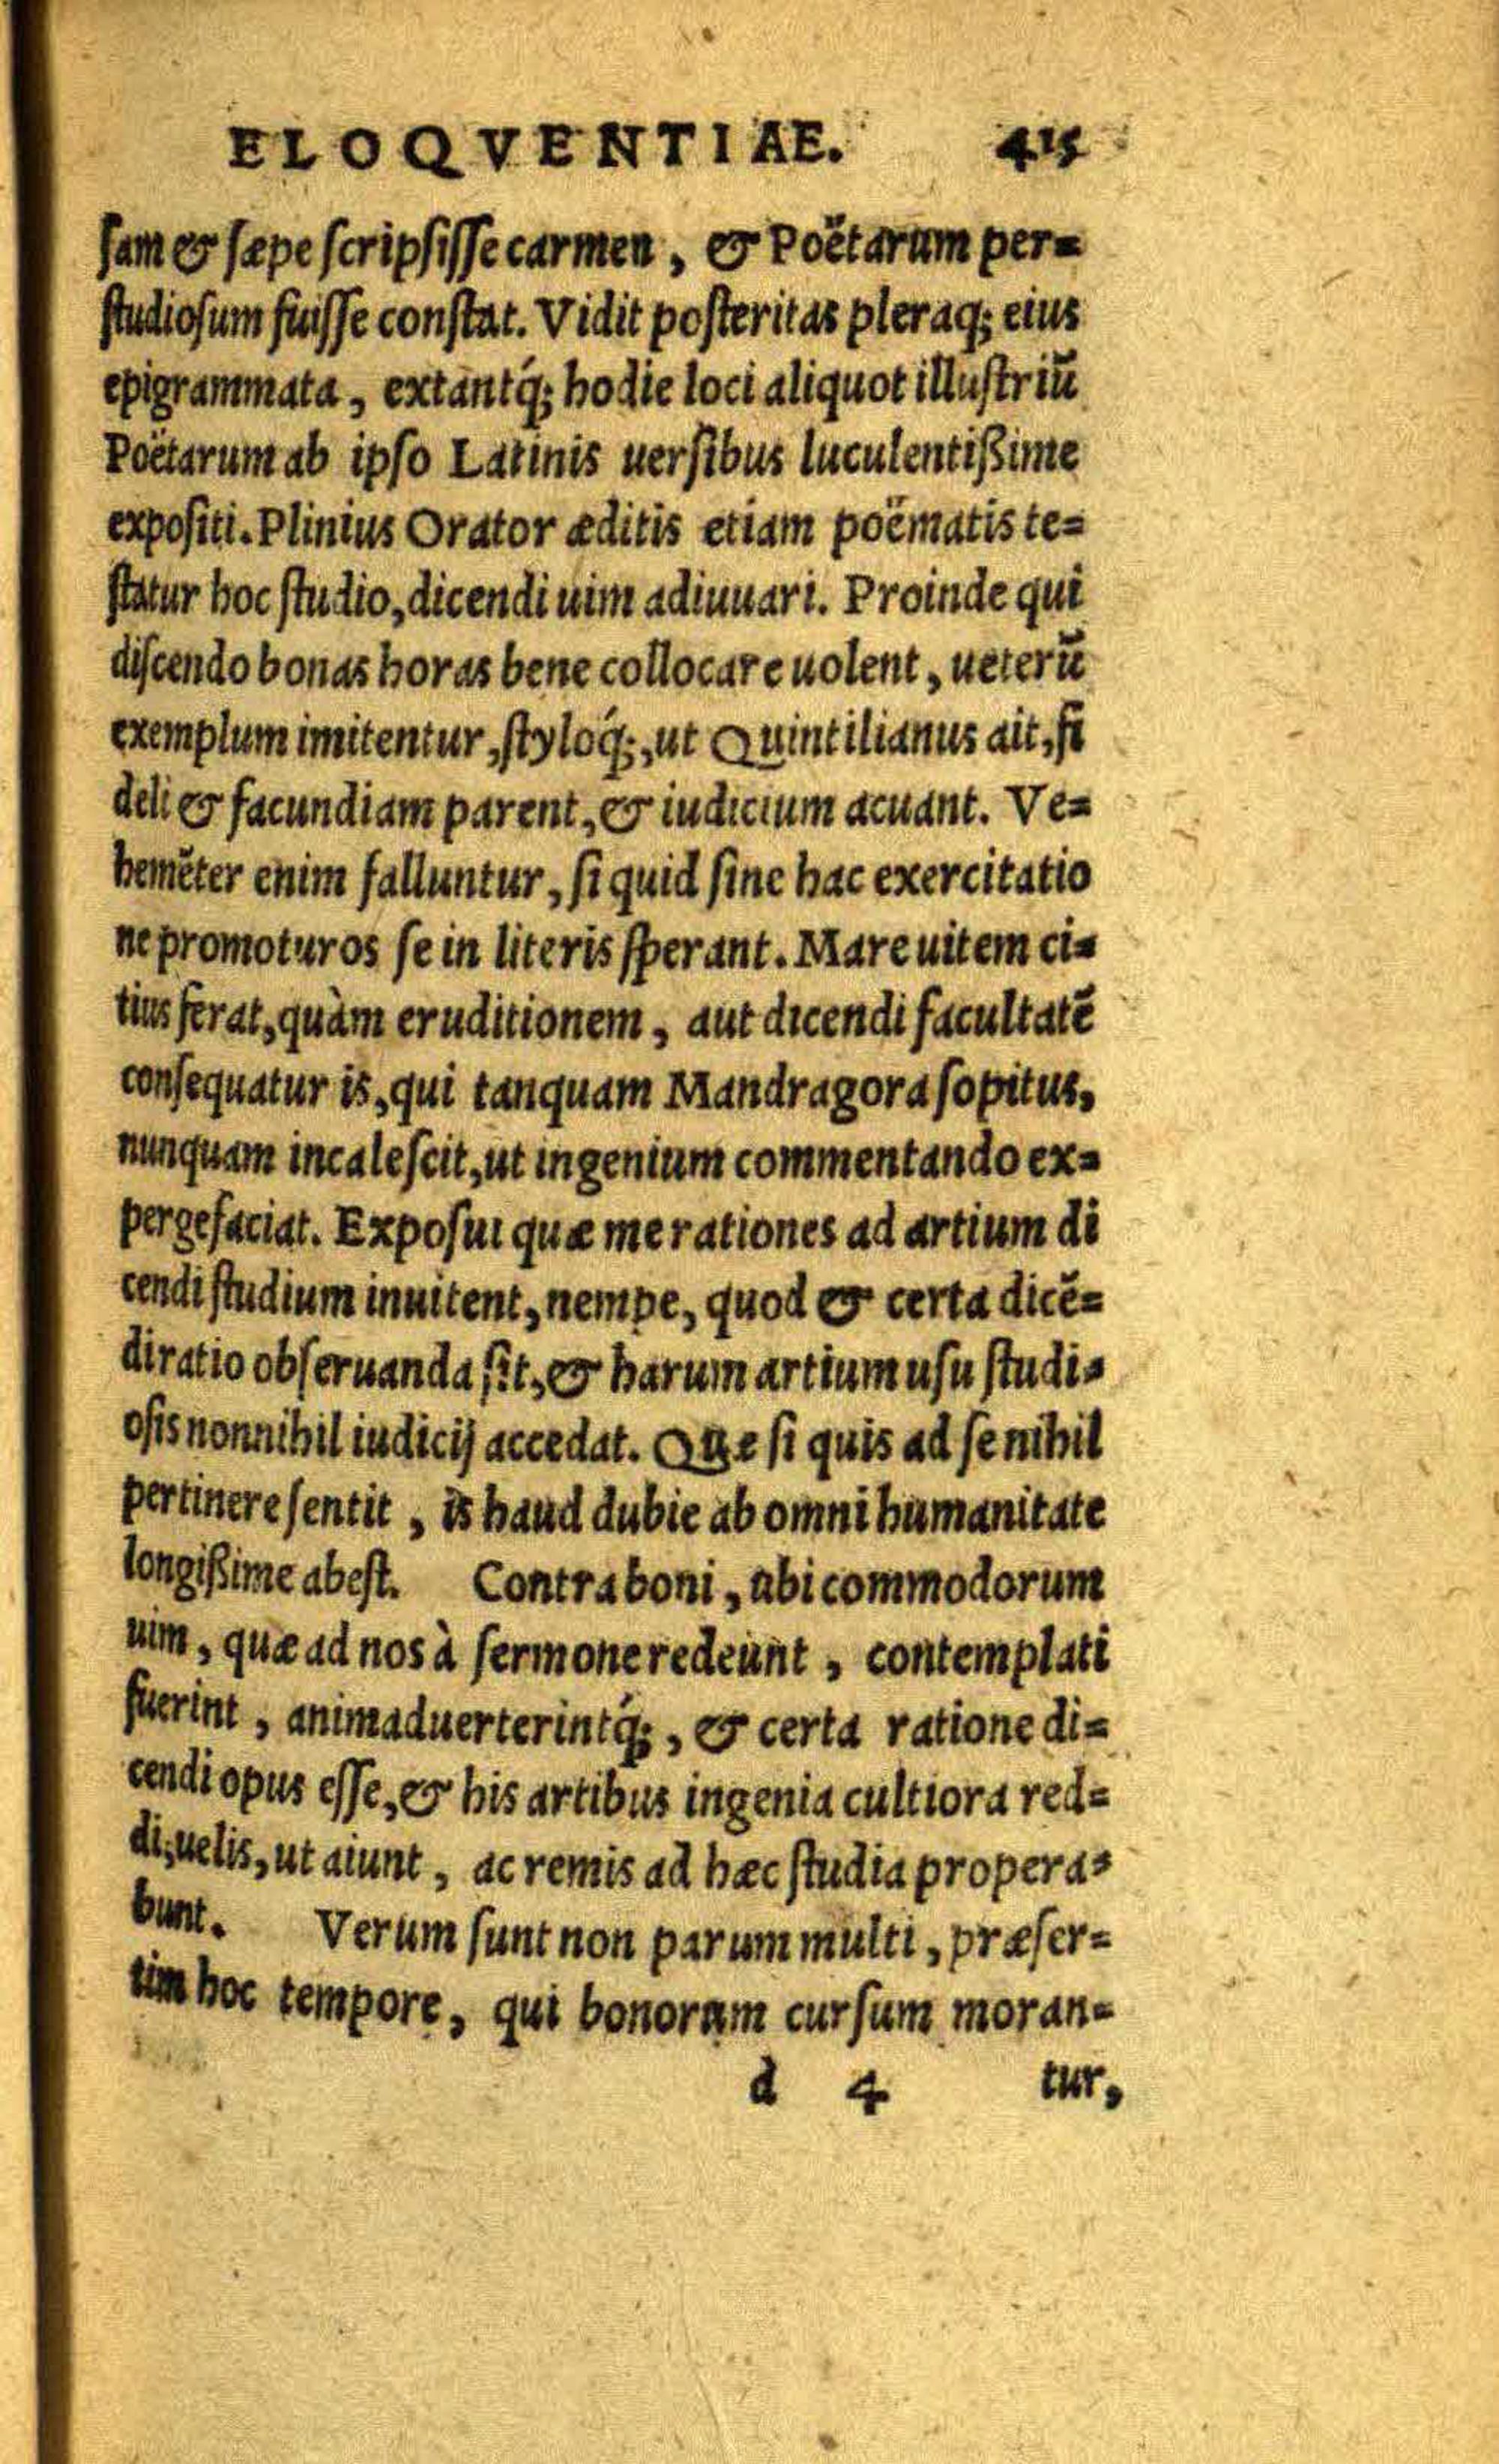 ELOQVENTIAE. 415
sam & sæpe scripsisse carmen, & Poëtarum per=
studiosum fuisse constat. Vidit posteritas pleraq; eius
epigrammata, extantq́; hodie loci aliquot illustriũ
Poëtarum ab ipso Latinis uersibus luculentißime
expositi. Plinius Orator æditis etiam poëmatis te=
statur hoc studio, dicendi uim adiuuari. Proinde qui
discendo bonas horas bene collocare uolent, ueterũ
exemplum imitentur, styloq́;, ut Quintilianus ait, fi
deli & facundiam parent, & iudicium acuant. Ve=
hemẽter enim falluntur, si quid sine hac exercitatio
ne promoturos se in literis sperant. Mare uitem ci=
tius ferat, quàm eruditionem, aut dicendi facultatẽ
consequatur is, qui tanquam Mandragora sopitus,
nunquam incalescit, ut ingenium commentando ex=
pergefaciat. Exposui quæ me rationes ad artium di
cendi studium inuitent, nempe, quod & certa dicẽ=
di ratio obseruanda sit, & harum artium usu studi=
osis nonnihil iudicij accedat. Quæ si quis ad se nihil
pertinere sentit, is haud dubie ab omni humanitate
longißime abest. Contra boni, ubi commodorum
uim, quæ ad nos à sermone redeunt, contemplati
fuerint, animaduerterintq́;, & certa ratione di=
cendi opus esse, & his artibus ingenia cultiora red=
di, uelis, ut aiunt, ac remis ad hæc studia propera=
bunt. Verum sunt non parum multi, præser=
tim hoc tempore, qui bonorum cursum moran=
d 4 tur,